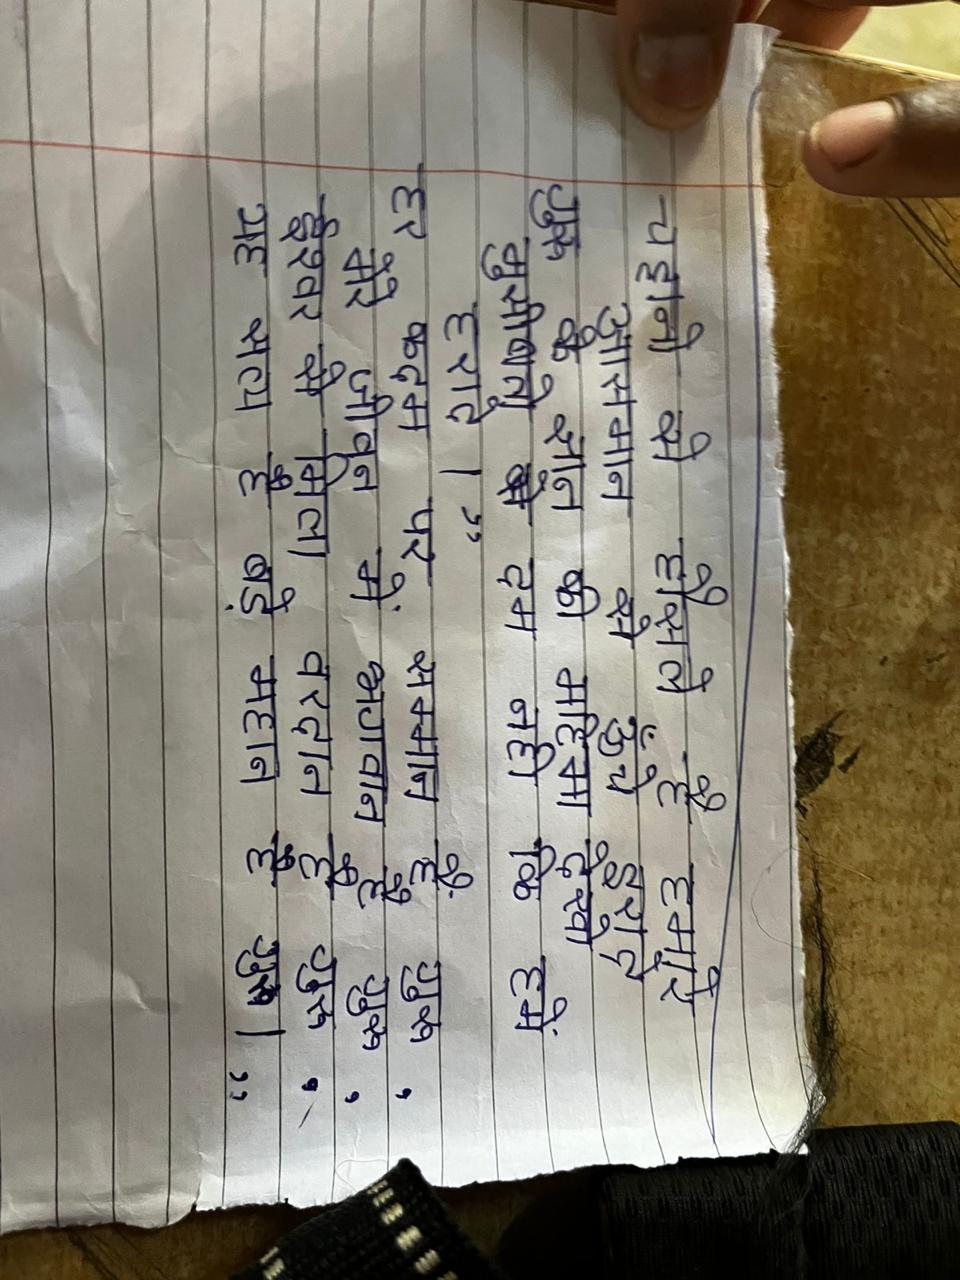 चट्टानो से हौसले है हमारे
आसमान से ऊँचे इरादे
गुरू के ज्ञान की महिमा देखो
मुसीबतो में दम नही कि हमें
हरादे।”
हर कदम पर सम्मान हैं गुरू,
मेरे जीवन में भगवान है गुरू,
ईश्वर से मिला वरदान है गुरू,
यह सत्य है बड़े महान है गुरू।”